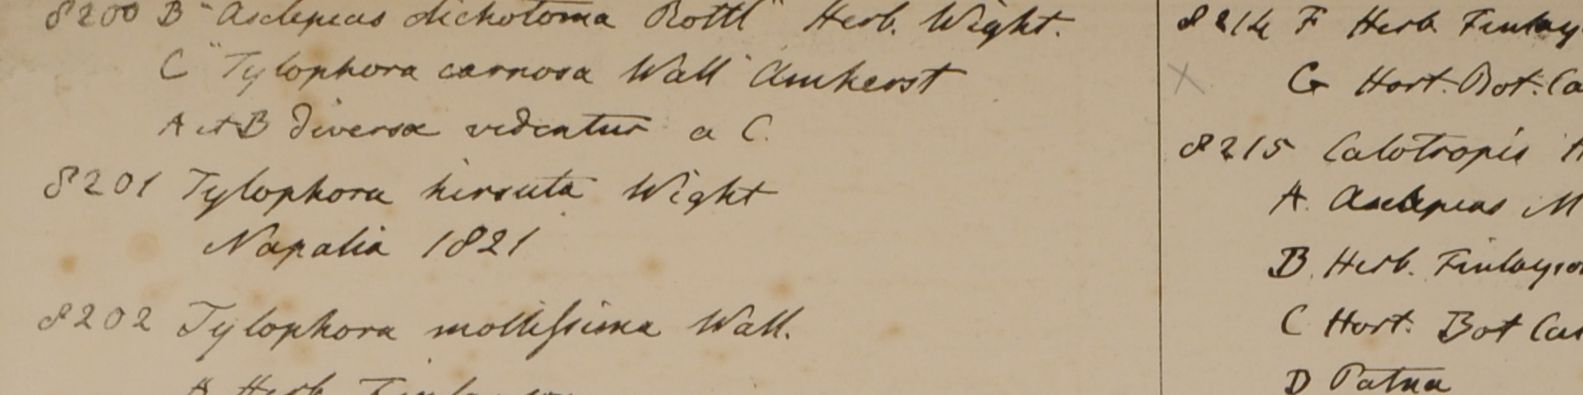 8200 B "Asclepias dichotoma Rottl" Herb. Wight.
C "Tylophora carnosa Wall" Amherst
A et B diversæ videntur a C.
8201 Tylophora hirsuta Wight
Napalia 1821
8202 Tylophora mollissima Wall.
A Herb. Finlayson
8214 F Herb Finlay
X G Hort. Bot. Ca
8215 Calotropis H
A. Asclepias M
B. Herb. Finlayson
C Hort. Bot Cal
D Patna